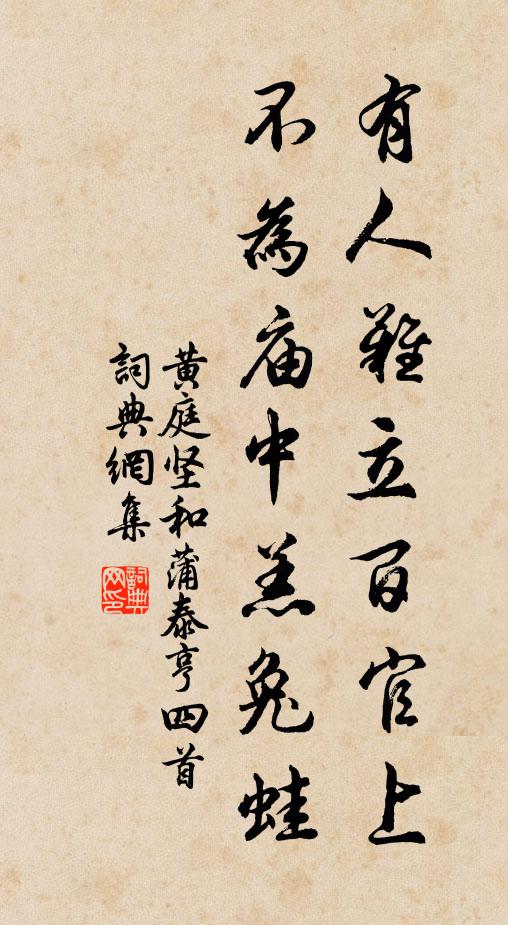 有人難立百官上
不為庙中羔兔蛙
黄庭坚和蒲泰亨四首
詞典網集
詞典网印